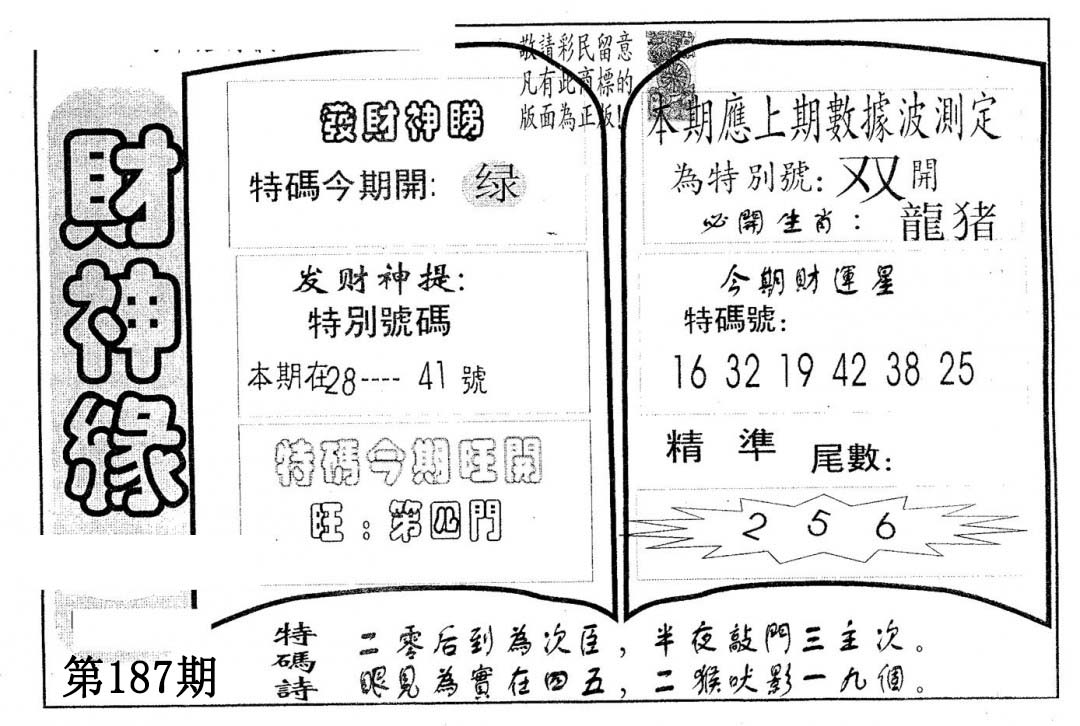 財神緣
第187期
敬請彩民留意
凡有此商標的
版面為正版!
發財神睇
特碼今期開: 绿
发财神提:
特別號碼
本期在28---- 41 號
特碼今期旺開
旺:第四門
本期應上期數據波測定
為特別號: 双 開
必開生肖: 龍猪
今期財運星
特碼號:
16 32 19 42 38 25
精 準 尾數:
2 5 6
特碼詩
二零后到為次臣,半夜敲門三主次。
眼見為實在四五,二猴吠影一九個。